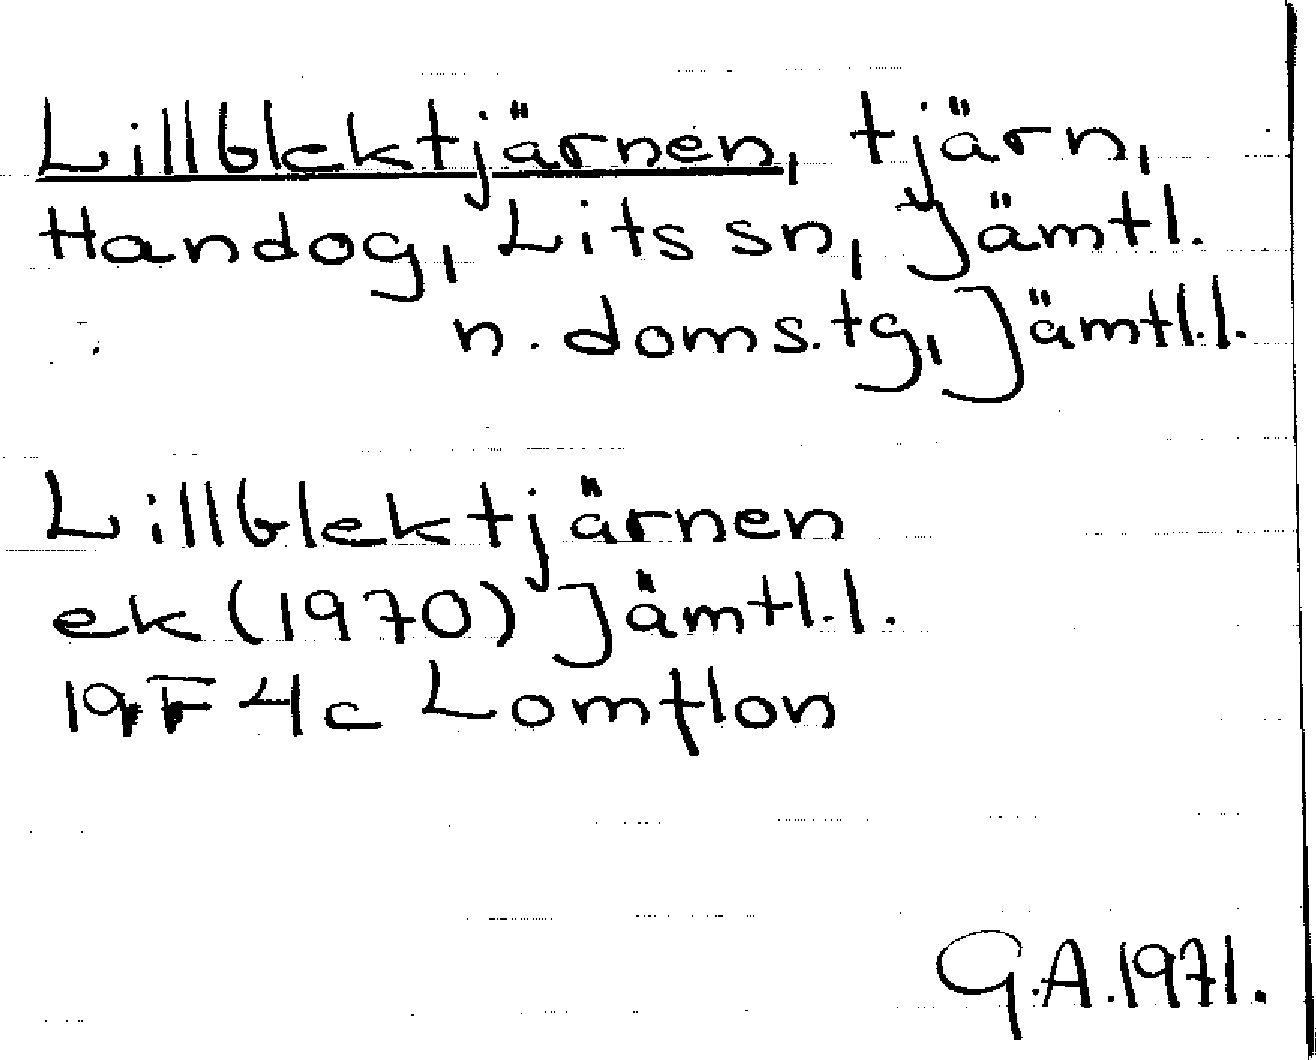 Lillblektjärnen, tjärn,
Handog, Lits sn, Jämtl.
n. doms.tg, Jämtl.l.
Lillblektjärnen
ek (1970) Jämtl.l.
19F 4c Lomflon
G.A.1971.